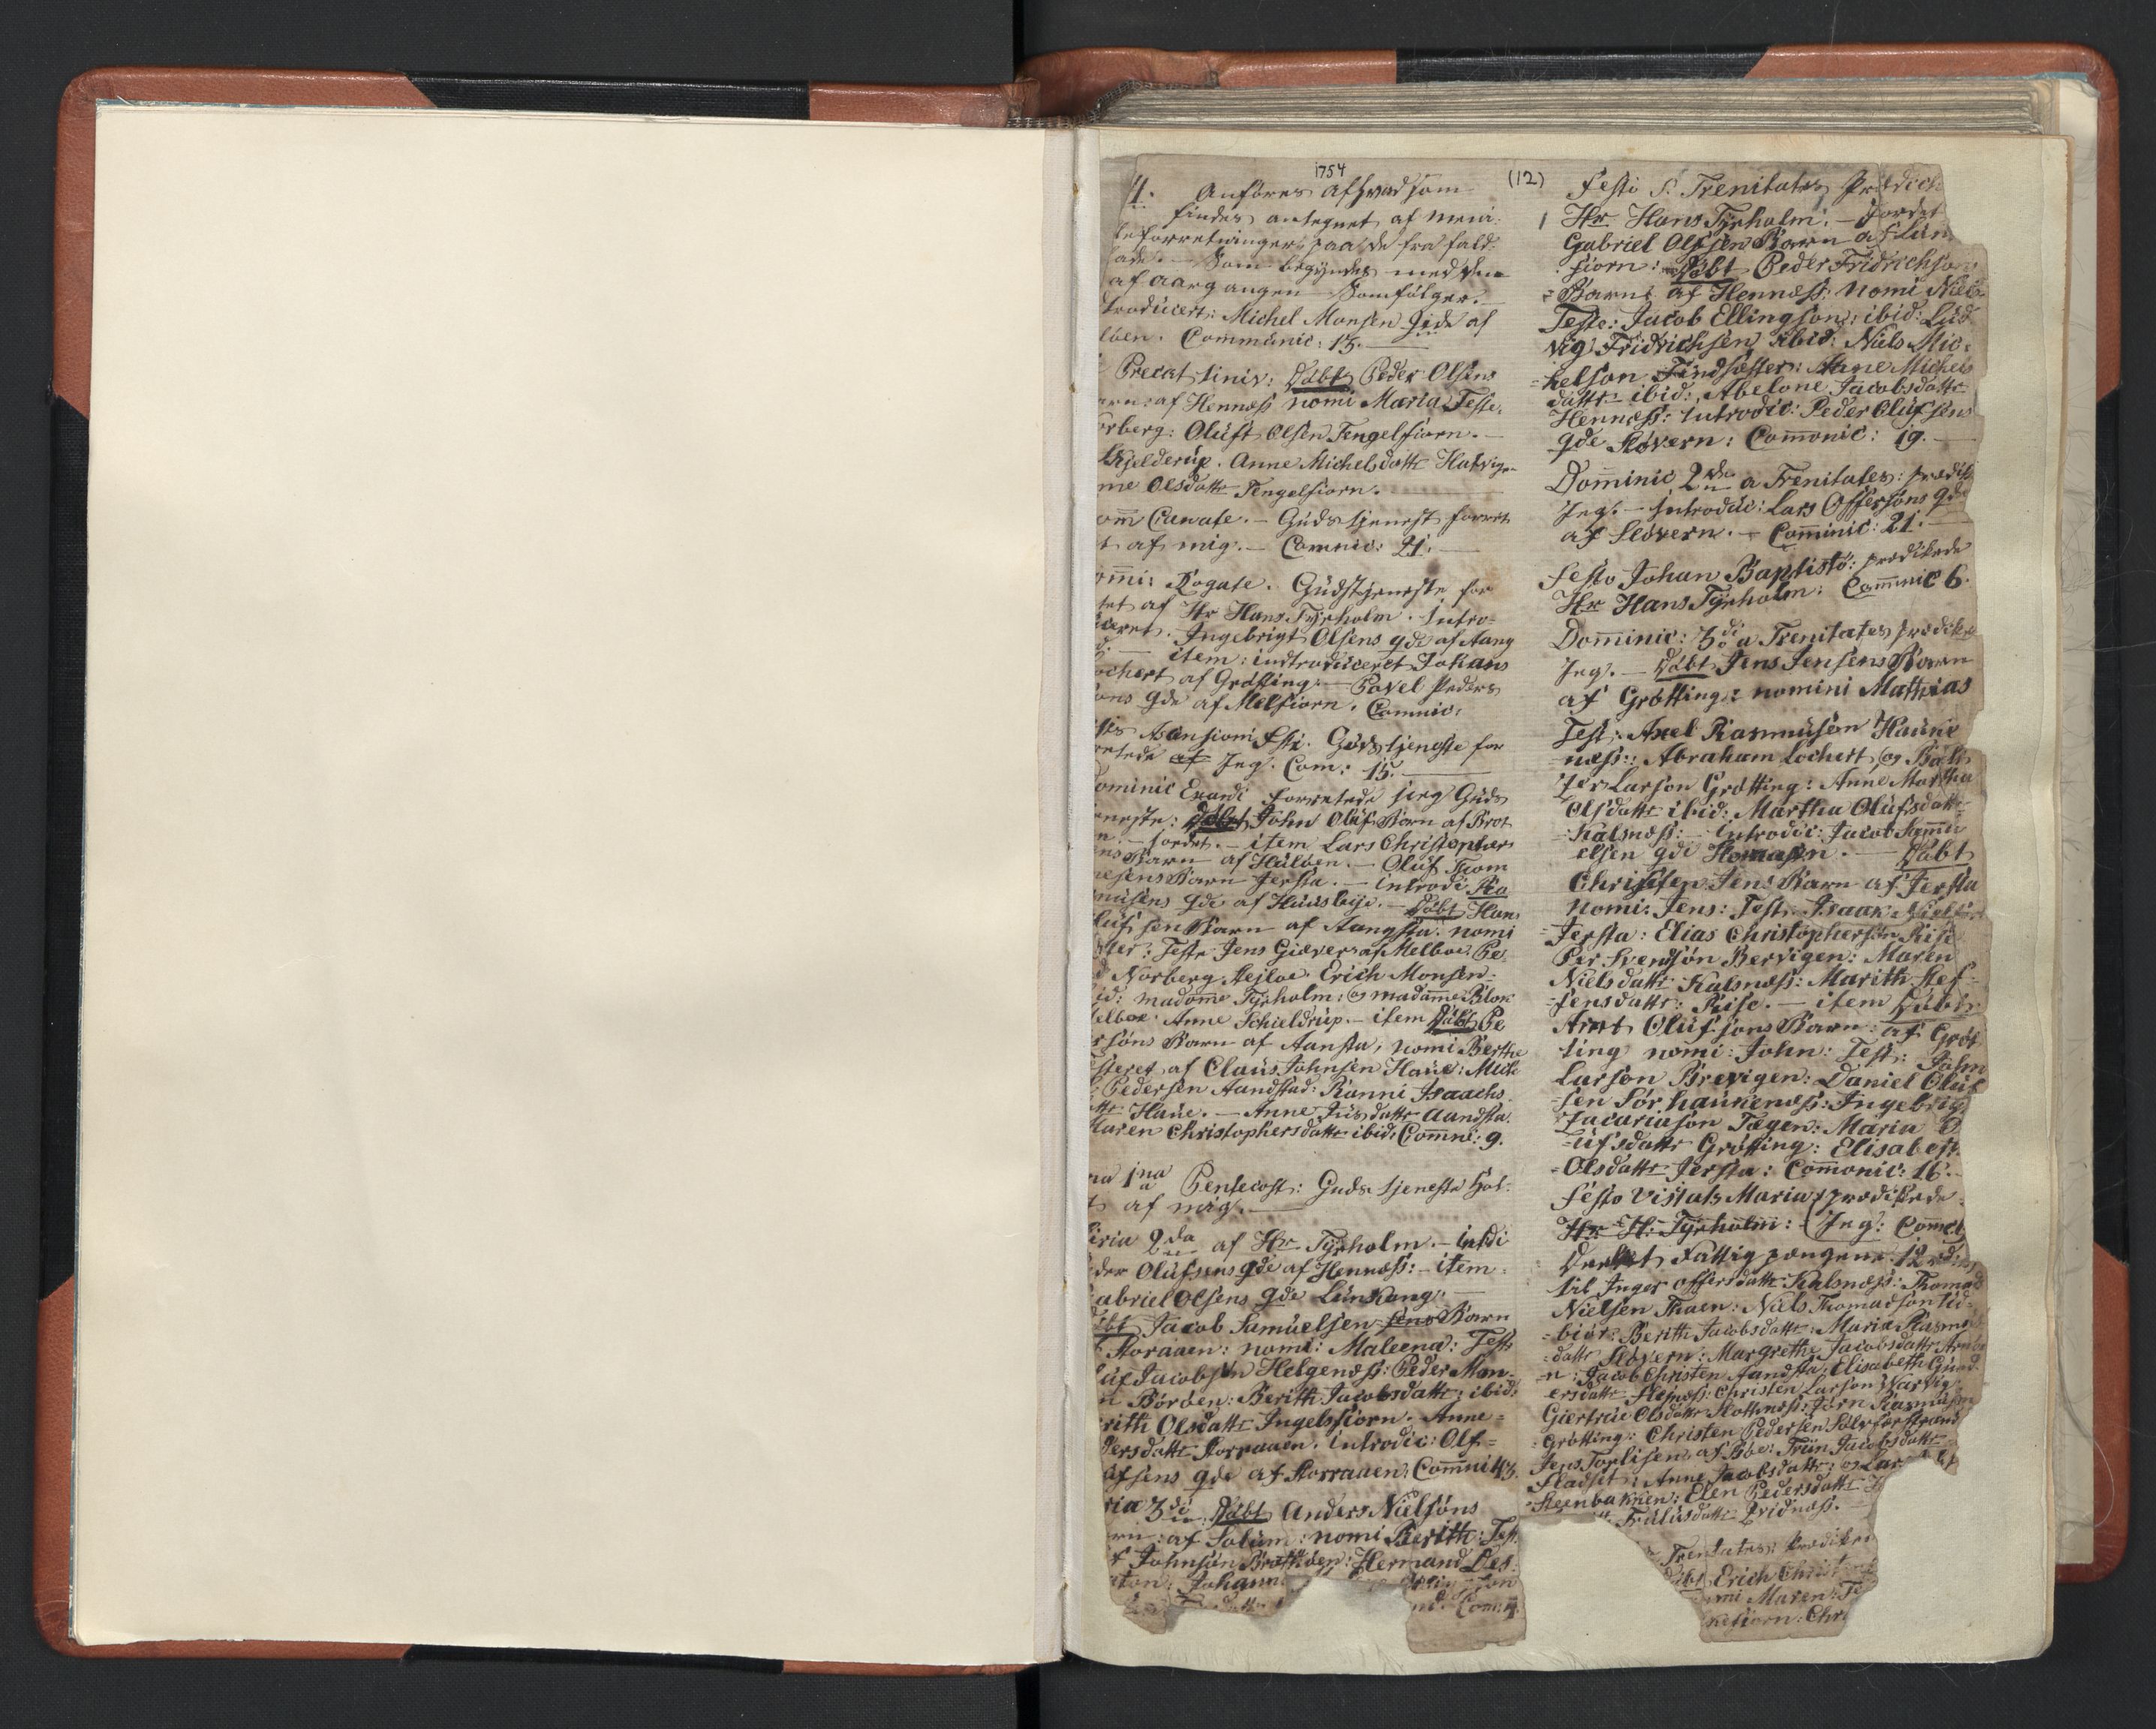 1754
(12)
4. Anföres af hvad som
findes antegnet af mini-
teforretninger paa de fra fald
som begyndes med den
af aargangen som følger.
troducert: Michel Monsen Qide af
löen. Communic: 13.
Precat siniv: Døbt Peder Olsens
arn: af Hennæss nomi Maria Teste.
orberg: Oluft Olsen Tengelfiorn.
Kjelderup. Anne Michelsdattr Hatvig
me Olsdattr Tengelfiorn.
om Canate. – Guds tjenest forret
t af mig. – Comnic: 21.
ommi: Rogate. Gudstjeneste for
tet af Hr Hans Tyrholm. Intro-
ceret. Ingebrigt Olsens qde af Aang
item: indtroduceret Johans
ochert af Grøtting. – Povel Peders
ons Qde af Melfiorn. Comnic:
Asensioni Esti. Gudstjeneste for
retede af Jeg. Com: 15.
ominic Exaudi forretede jeg Guds
neste: Døbt John Oluf Barn af Brot
n – jordet. – item Lars Christopher
ens Barn af Hulöen. – Oluf Tom
esens Barn Jersta. – introdi Ra
musens Qde af Huusbye. – Døbt Hans
lufsen Barn af Aangsta: nomi
ter: Teste Jens Giævers af Melboe Pe
d Norberg Hejloe Erich Monsen
id: madame Tyrholm: og madamme Blok
elboe Anne Schieldrup. – item Døbt Pe
rsöns Barn af Aansta, nomi Berthe
steret af Claus Johnsen Haue: Mich
l Pedersen Aandstad: Ranni Isaachs
attr Haue. – Anne Jensdattr Aandsta.
Maren Christophersdattr ibid: Commni: 9.
ria 1na Pentecost: Guds tjeneste hol-
t af mig.
iria 2da af Hr Tyrholm. – intdi
der Olufsens qde af Hennæss: – item
abriel Olsens qde Lunkang
øbt Jacob Samuelsen sens Barn
f Storaaen: nomi: Maleena: Test
uf Jacobsen Helgenæss: Peder Mon-
n Börøen: Berith Jacobsdattr: ibid:
rith Olsdattr Ingelsfiorn. Anne
Persdattr Storraaen. introdic: Olf-
ufsens qde af Storraaen. Commni 43.
ria 3di: Døbt Anders Nielsöns
rn: af Solum: nomi Berith: Test.
f Johnsön Brottöen: Hermand Les
ton: Johann
Com: 4.
Festo S. Trenitates Prædich
1 Hr Hans Tyrholm: – Jordet
Gabriel Olsen Barn af Lun
fiorn: Døbt Peder Fridrichson
Barn: af Hennæss: nomi Niels
Teste: Jacob Ellingson: ibid: Lud
vig Fridrichsen ibid: Niels Mic-
helson Findsæter: Anne Michels
dattr ibid: Abelone Jacobsdattr
Hennæss: introdic: Peder Olufsens
qde Slövern: Commonic: 19.
Dominic 2de a Trenitates: prædik
Jeg. – introduc: Lars Offersöns qde
af Slövern. – Comminic: 21.
Festo Johan Baptistö: prædikede
Hr Hans Tyrholm: Commnic 6.
Dominic: 3di a Trenitates prædike
Jeg. – Døbt Jens Jensens Barn
af Grötting: nomini Mathias
Test: Axel Rasmusön Haukne
næss: Abraham Lochert, og Balt
zer Larson Grøtting: Anne Martha
Olsdattr ibid: Martha Olufsdattr
Kalsnæss: – introdic: Jacob Samu
elsen qde – Døbt
Christen Jens Barn af Jersta
nomi: Jens: Test: Isaak
Jersta: Elias Christophersön Rise
Per Svendsön Bervigen: Maren
Nielsdattr Kalsnæss: Marith Stef-
fensdattr Rise. – item Døbt
Arnt Olufsons Barn: af Grøt
ting nomi: John: Test: John
Larson Brevigen: Daniel Oluf
sen Sör haukenæss: Ingebrig
Zacariason Tægen: Maria O
ufsdattr Grøtting: Elisabeth
Olsdattr Jersta: Commonic: 16.
Festo visitats Maria prædikede
Hr H: Tyrholm: (Jeg: Comc
Deelet Fattig pengene: 12 rd:
til Inger offersdattr Kalsnæss: Thomas
Nielsen Thuen: Niels Thomadson Tid-
biör: Berith Jacobsdattr: Maria Rasmus
dattr Slövern: Margrethe Jacobsdattr
n: Jacob Christen Aandsta: Elisabeth Gund
ersdattr Flejnæss: Christen Larson Varvig:
Giertrue Olsdattr Slottnæss: Jörn Rasmusön
Grøtting: Christen Pedersen Sölverstrand
Jens Torlisen af Böe: Trün Jacobsdattr
Fladset: Anne Jacobsdattr: og Lar
Steenbakken: Elen Pedersdattr
Trulusdattr Bridnæss.
Trenitates: Prædiken
Døbt Erich Christ
omi Maren: Te
kefiorn: Chri